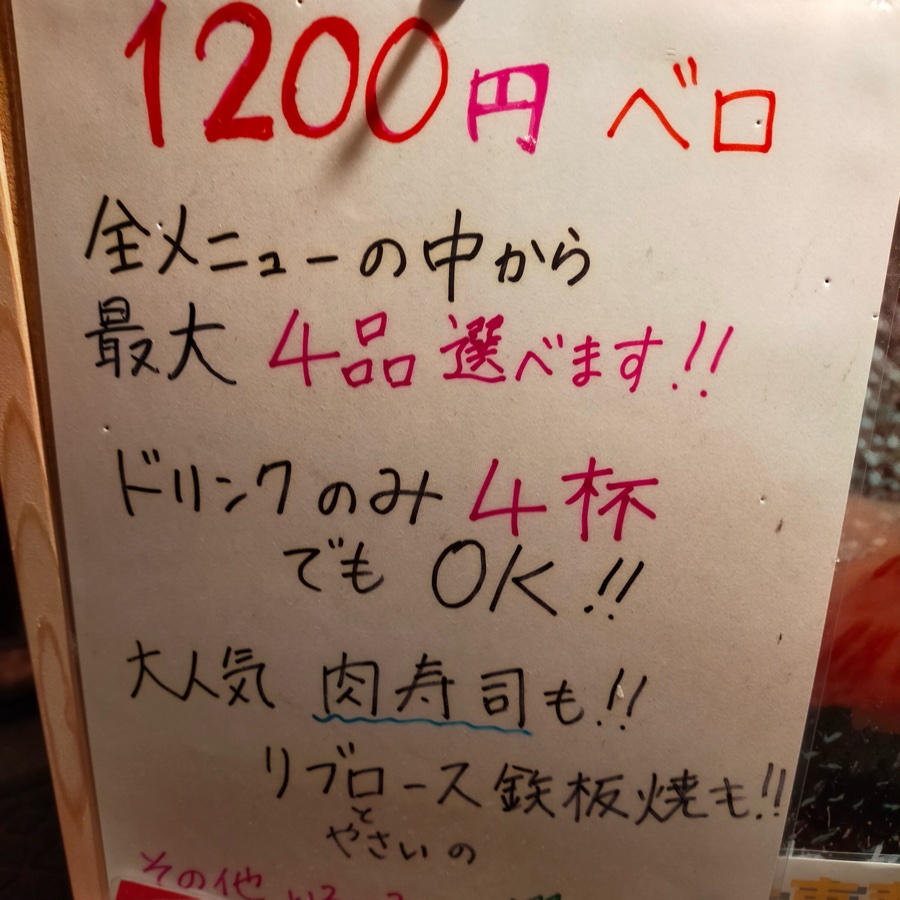 1200円 ベロ
全メニューの中から
最大 4品選べます!!
ドリンクのみ 4杯
でも OK!!
大人気 肉寿司も!!
リブロース鉄板焼も!!
と
やさいの
その他